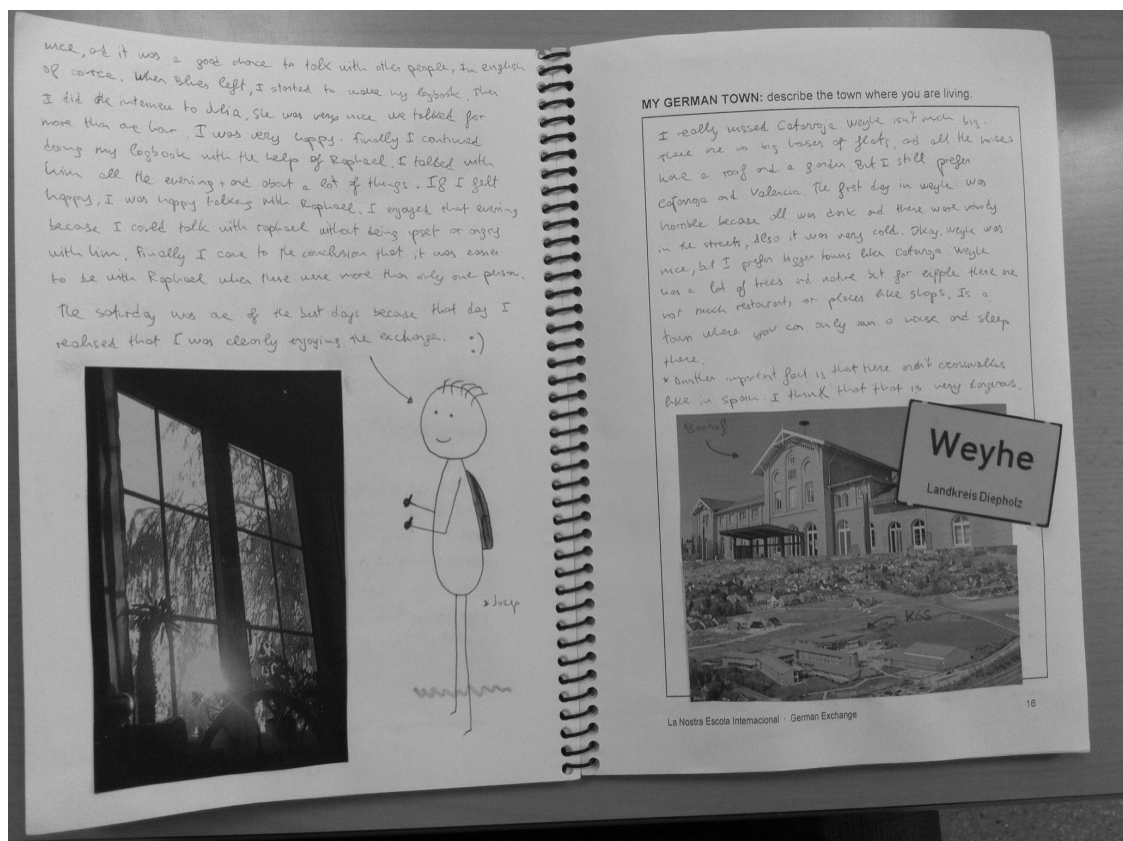 nice, and it was a good chance to talk with other people, In english
of corse. When Blues left, I started to make my logbook. Then
I did the interview to Julia, she was very nice we talked for
more than one hour. I was very happy. Finally I continued
doing my logbook with the help of Raphael. I talked with
him all the evening, and about a lot of things. If I felt
happy, I was happy talking with Raphael. I enjoyed that evening
because I could talk with raphael without being upset or angry
with him. Finally I come to the conclusion that it was easier
to be with Raphael when there were more than only one person.
The saturday was one of the best days because that day I
realised that I was clearly enjoying the exchange. :)
* Josep
MY GERMAN TOWN: describe the town where you are living.
I really missed Catarroja. Weyhe isn't much big.
There are no big houses of flats, and all the houses
have a roof and a garden. But I still prefer
Catarroja and Valencia. The first day in weyhe was
horrible because all was dark and there were nobody
in the streets, Also it was very cold. Okay, weyhe was
nice, but I prefer bigger towns like Catarroja. Weyhe
has a lot of trees and nature but for exmple there are
not much restaurants or places like shops. Is a
town where you can only own a house and sleep
there.
* Another important fact is that there aren't crosswalks
like in spain. I think that that is very dangerous.
Banhof
Weyhe
Landkreis Diepholz
KGS
La Nostra Escola Internacional · German Exchange
16